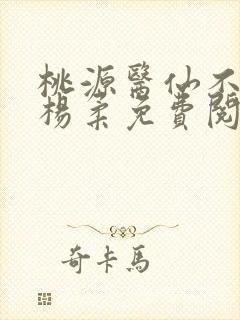 桃源醫仙不
楊柔免費閱
奇卡馬